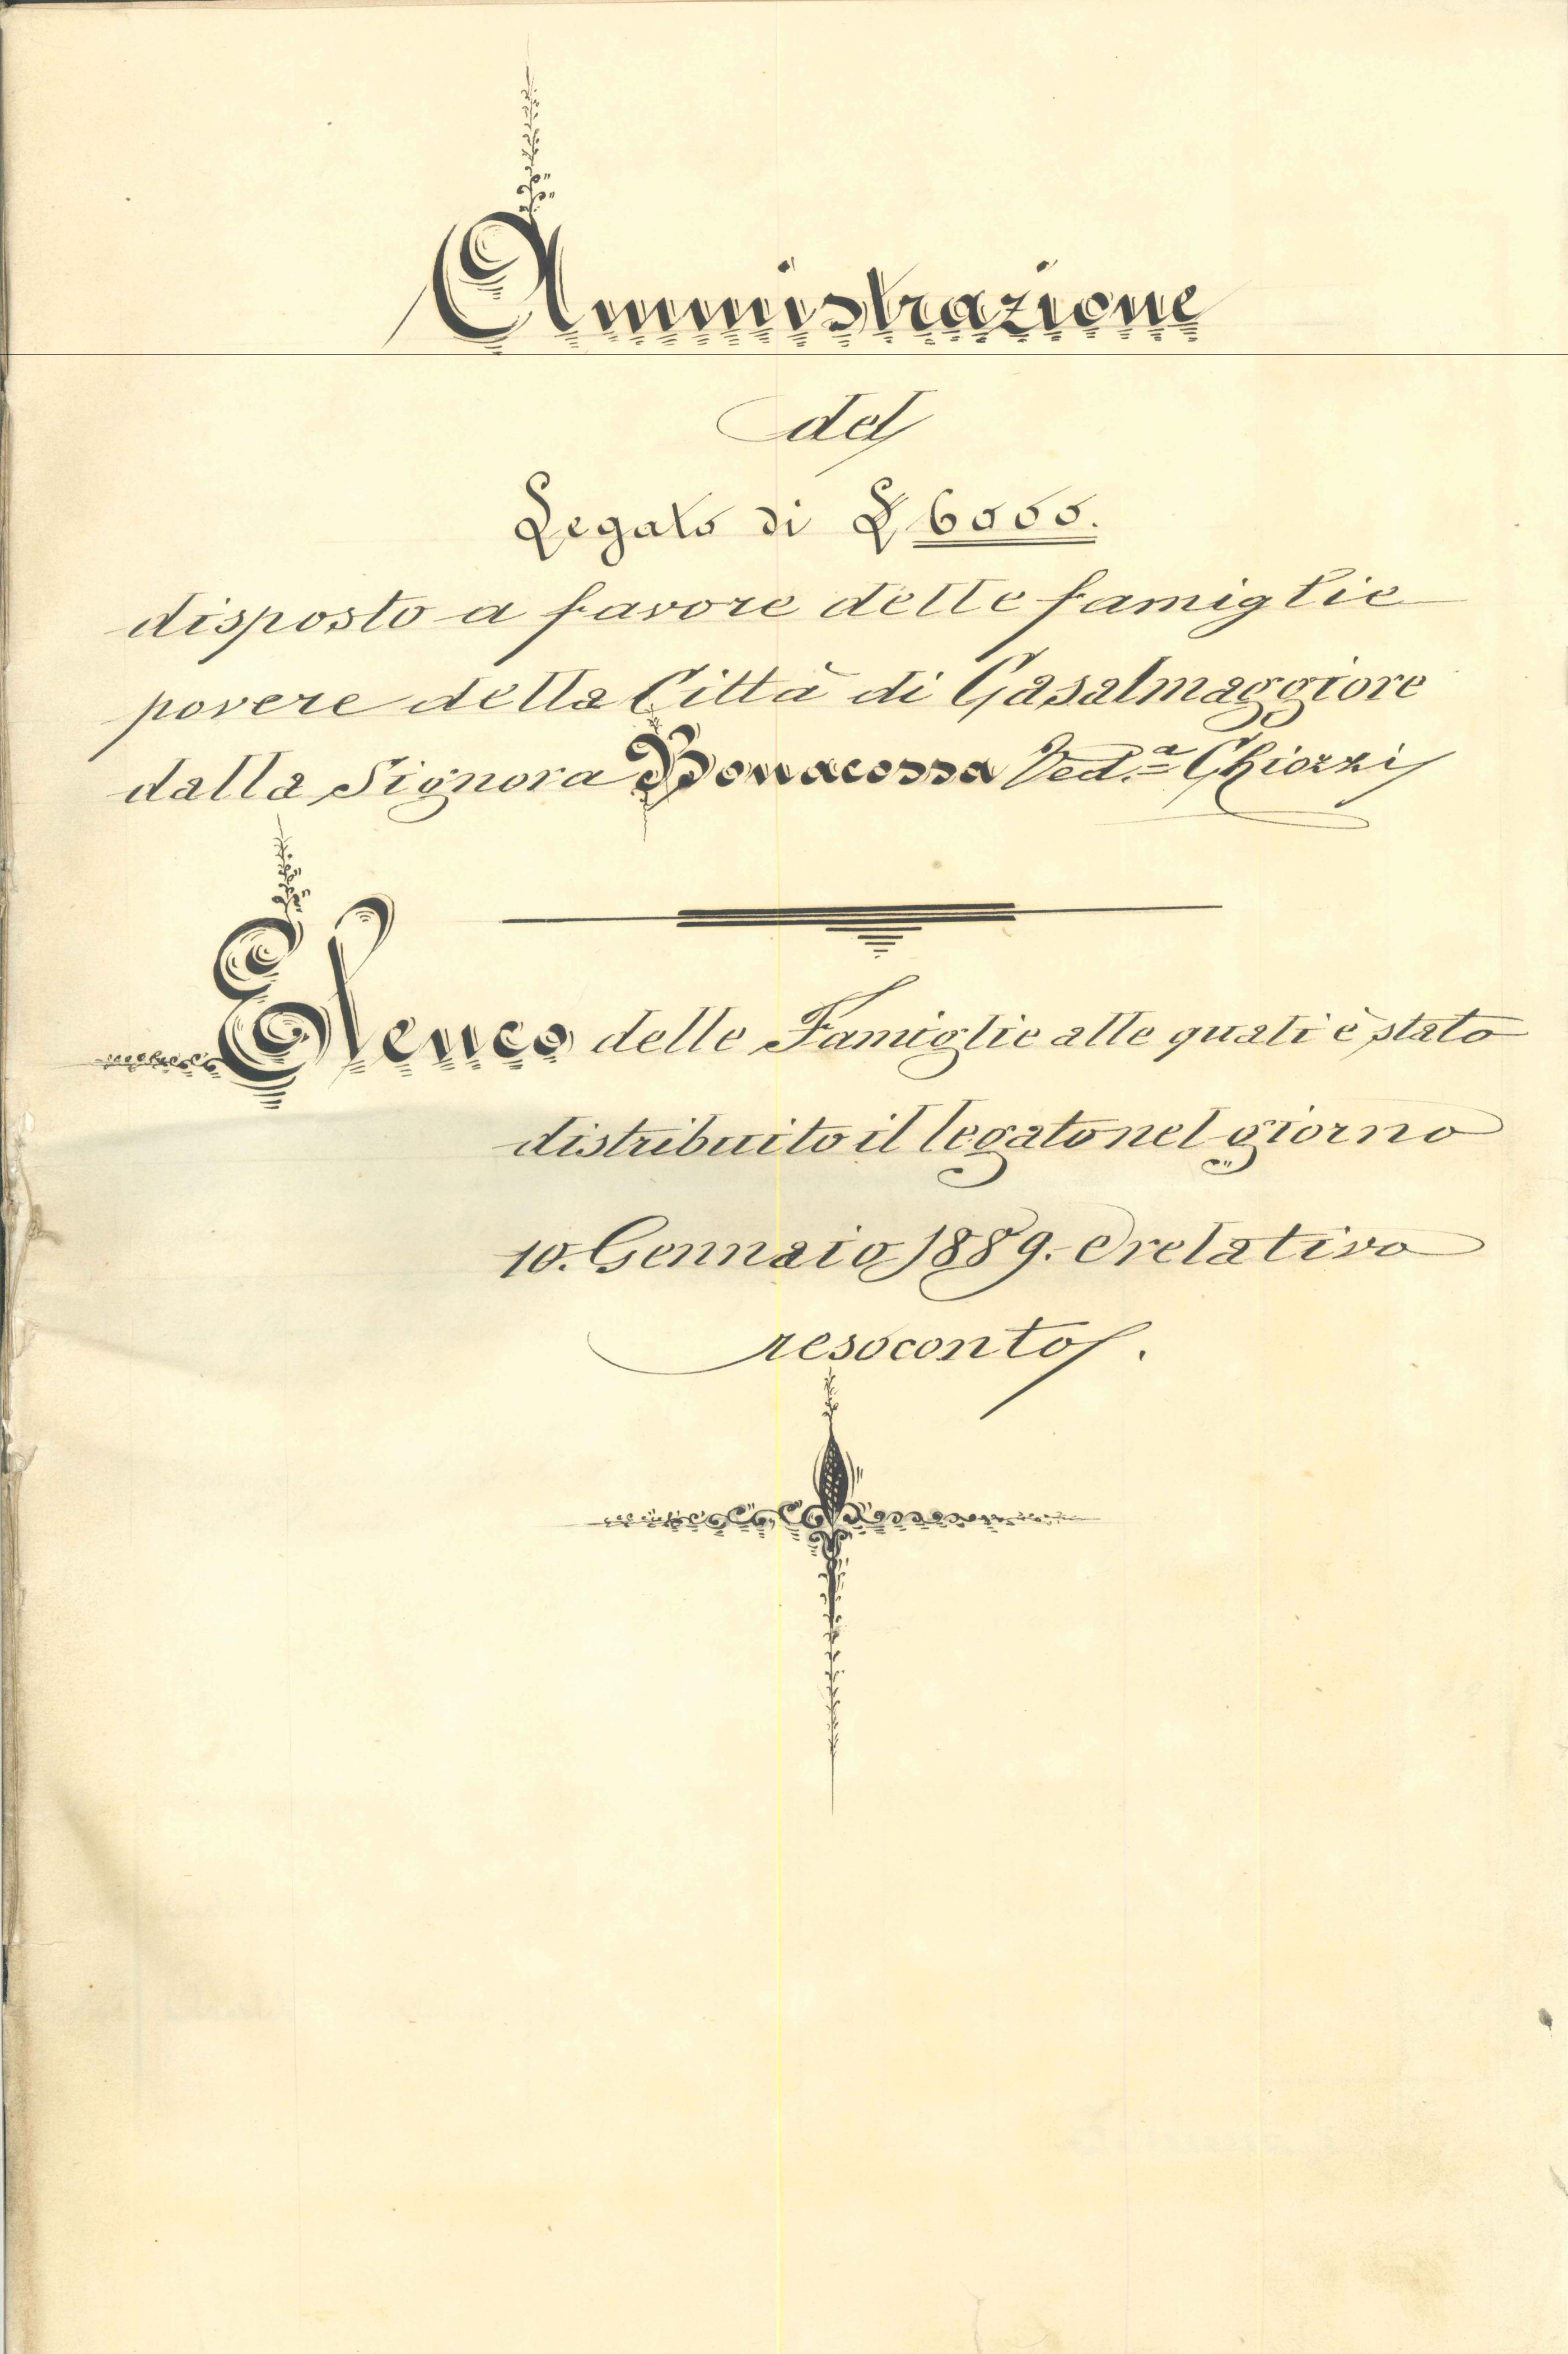 Amministrazione
del
Legato di £ 6000.
disposto a favore delle famiglie
povere della Città di Casalmaggiore
dalla Signora Bonacossa Ved.ª Chiozzi
Elenco delle Famiglie alle quali è stato
distribuito il legato nel giorno
10. Gennaio 1889. e relativo
resoconto.